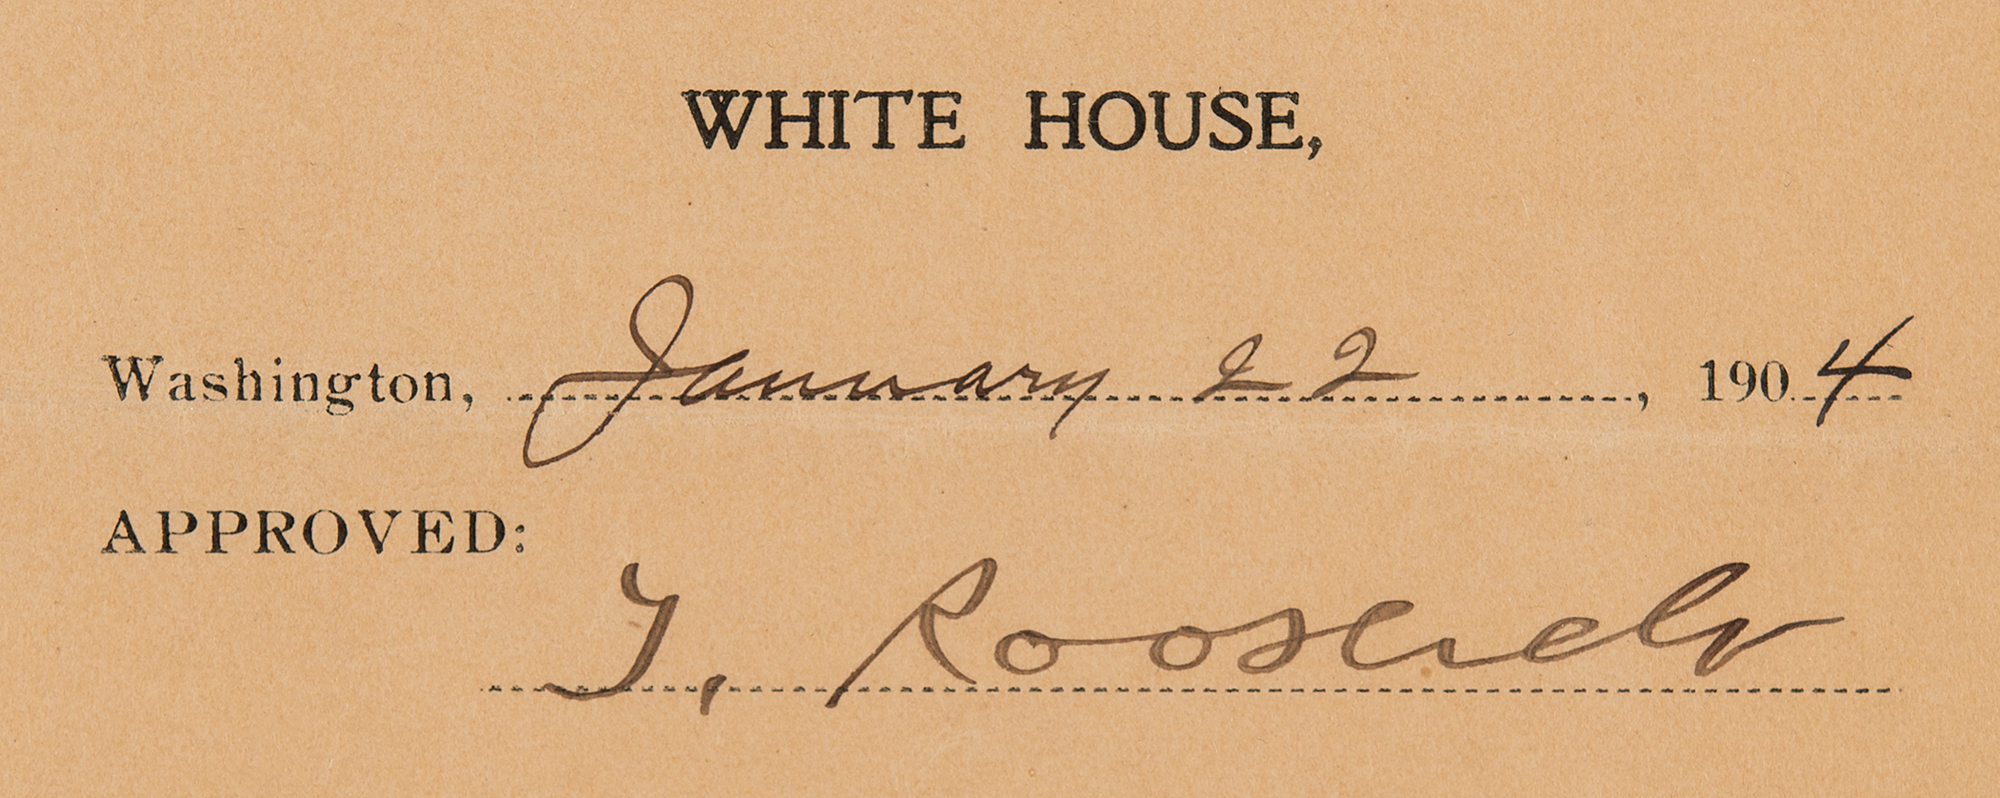 WHITE HOUSE,
Washington, January 22, 1904
APPROVED:
T. Roosevelt